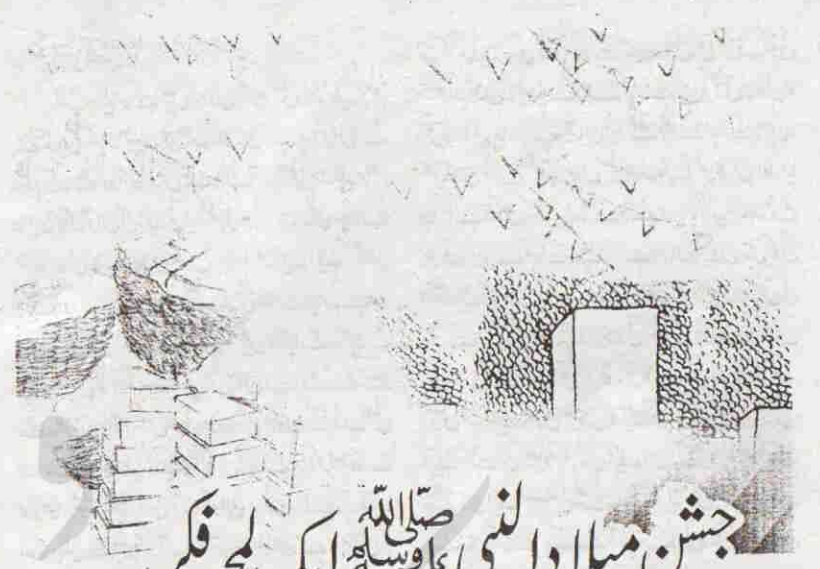 جشن میلاد النبی صلی اللہ علیہ وسلم ایک لمحہ فکر